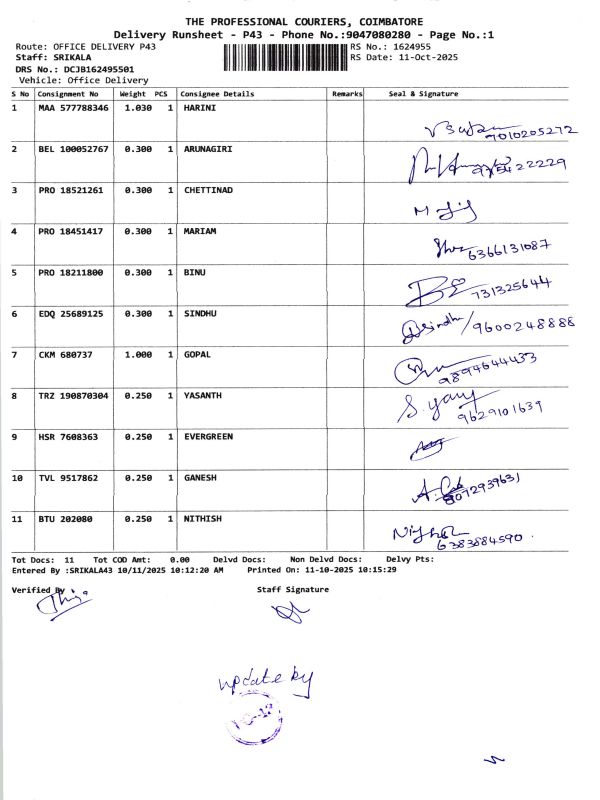 THE PROFESSIONAL COURIERS, COIMBATORE
Delivery Runsheet - P43 - Phone No.:9047080280 - Page No.:1
Route: OFFICE DELIVERY P43 RS No.: 1624955
Staff: SRIKALA RS Date: 11-Oct-2025
DRS No.: DCJB162495501
Vehicle: Office Delivery
S No Consignment No Weight PCS Consignee Details Remarks Seal & Signature
1 MAA 577788346 1.030 1 HARINI
7010205272
2 BEL 100052767 0.300 1 ARUNAGIRI
3 PRO 18521261 0.300 1 CHETTINAD
4 PRO 18451417 0.300 1 MARIAM
6366131087
5 PRO 18211800 0.300 1 BINU
731325644
6 EDQ 25689125 0.300 1 SINDHU
Sindhu/9600248888
7 CKM 680737 1.000 1 GOPAL
9894644433
8 TRZ 190870304 0.250 1 YASANTH
9629101639
9 HSR 7608363 0.250 1 EVERGREEN
10 TVL 9517862 0.250 1 GANESH
11 BTU 202080 0.250 1 NITHISH
6383884590
Tot Docs: 11 Tot COD Amt: 0.00 Delvd Docs: Non Delvd Docs: Delvy Pts:
Entered By :SRIKALA43 10/11/2025 10:12:20 AM Printed On: 11-10-2025 10:15:29
Verified By : Staff Signature
update by